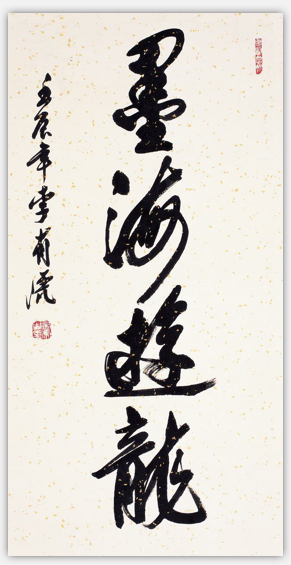 墨海游龍
壬辰年李有流